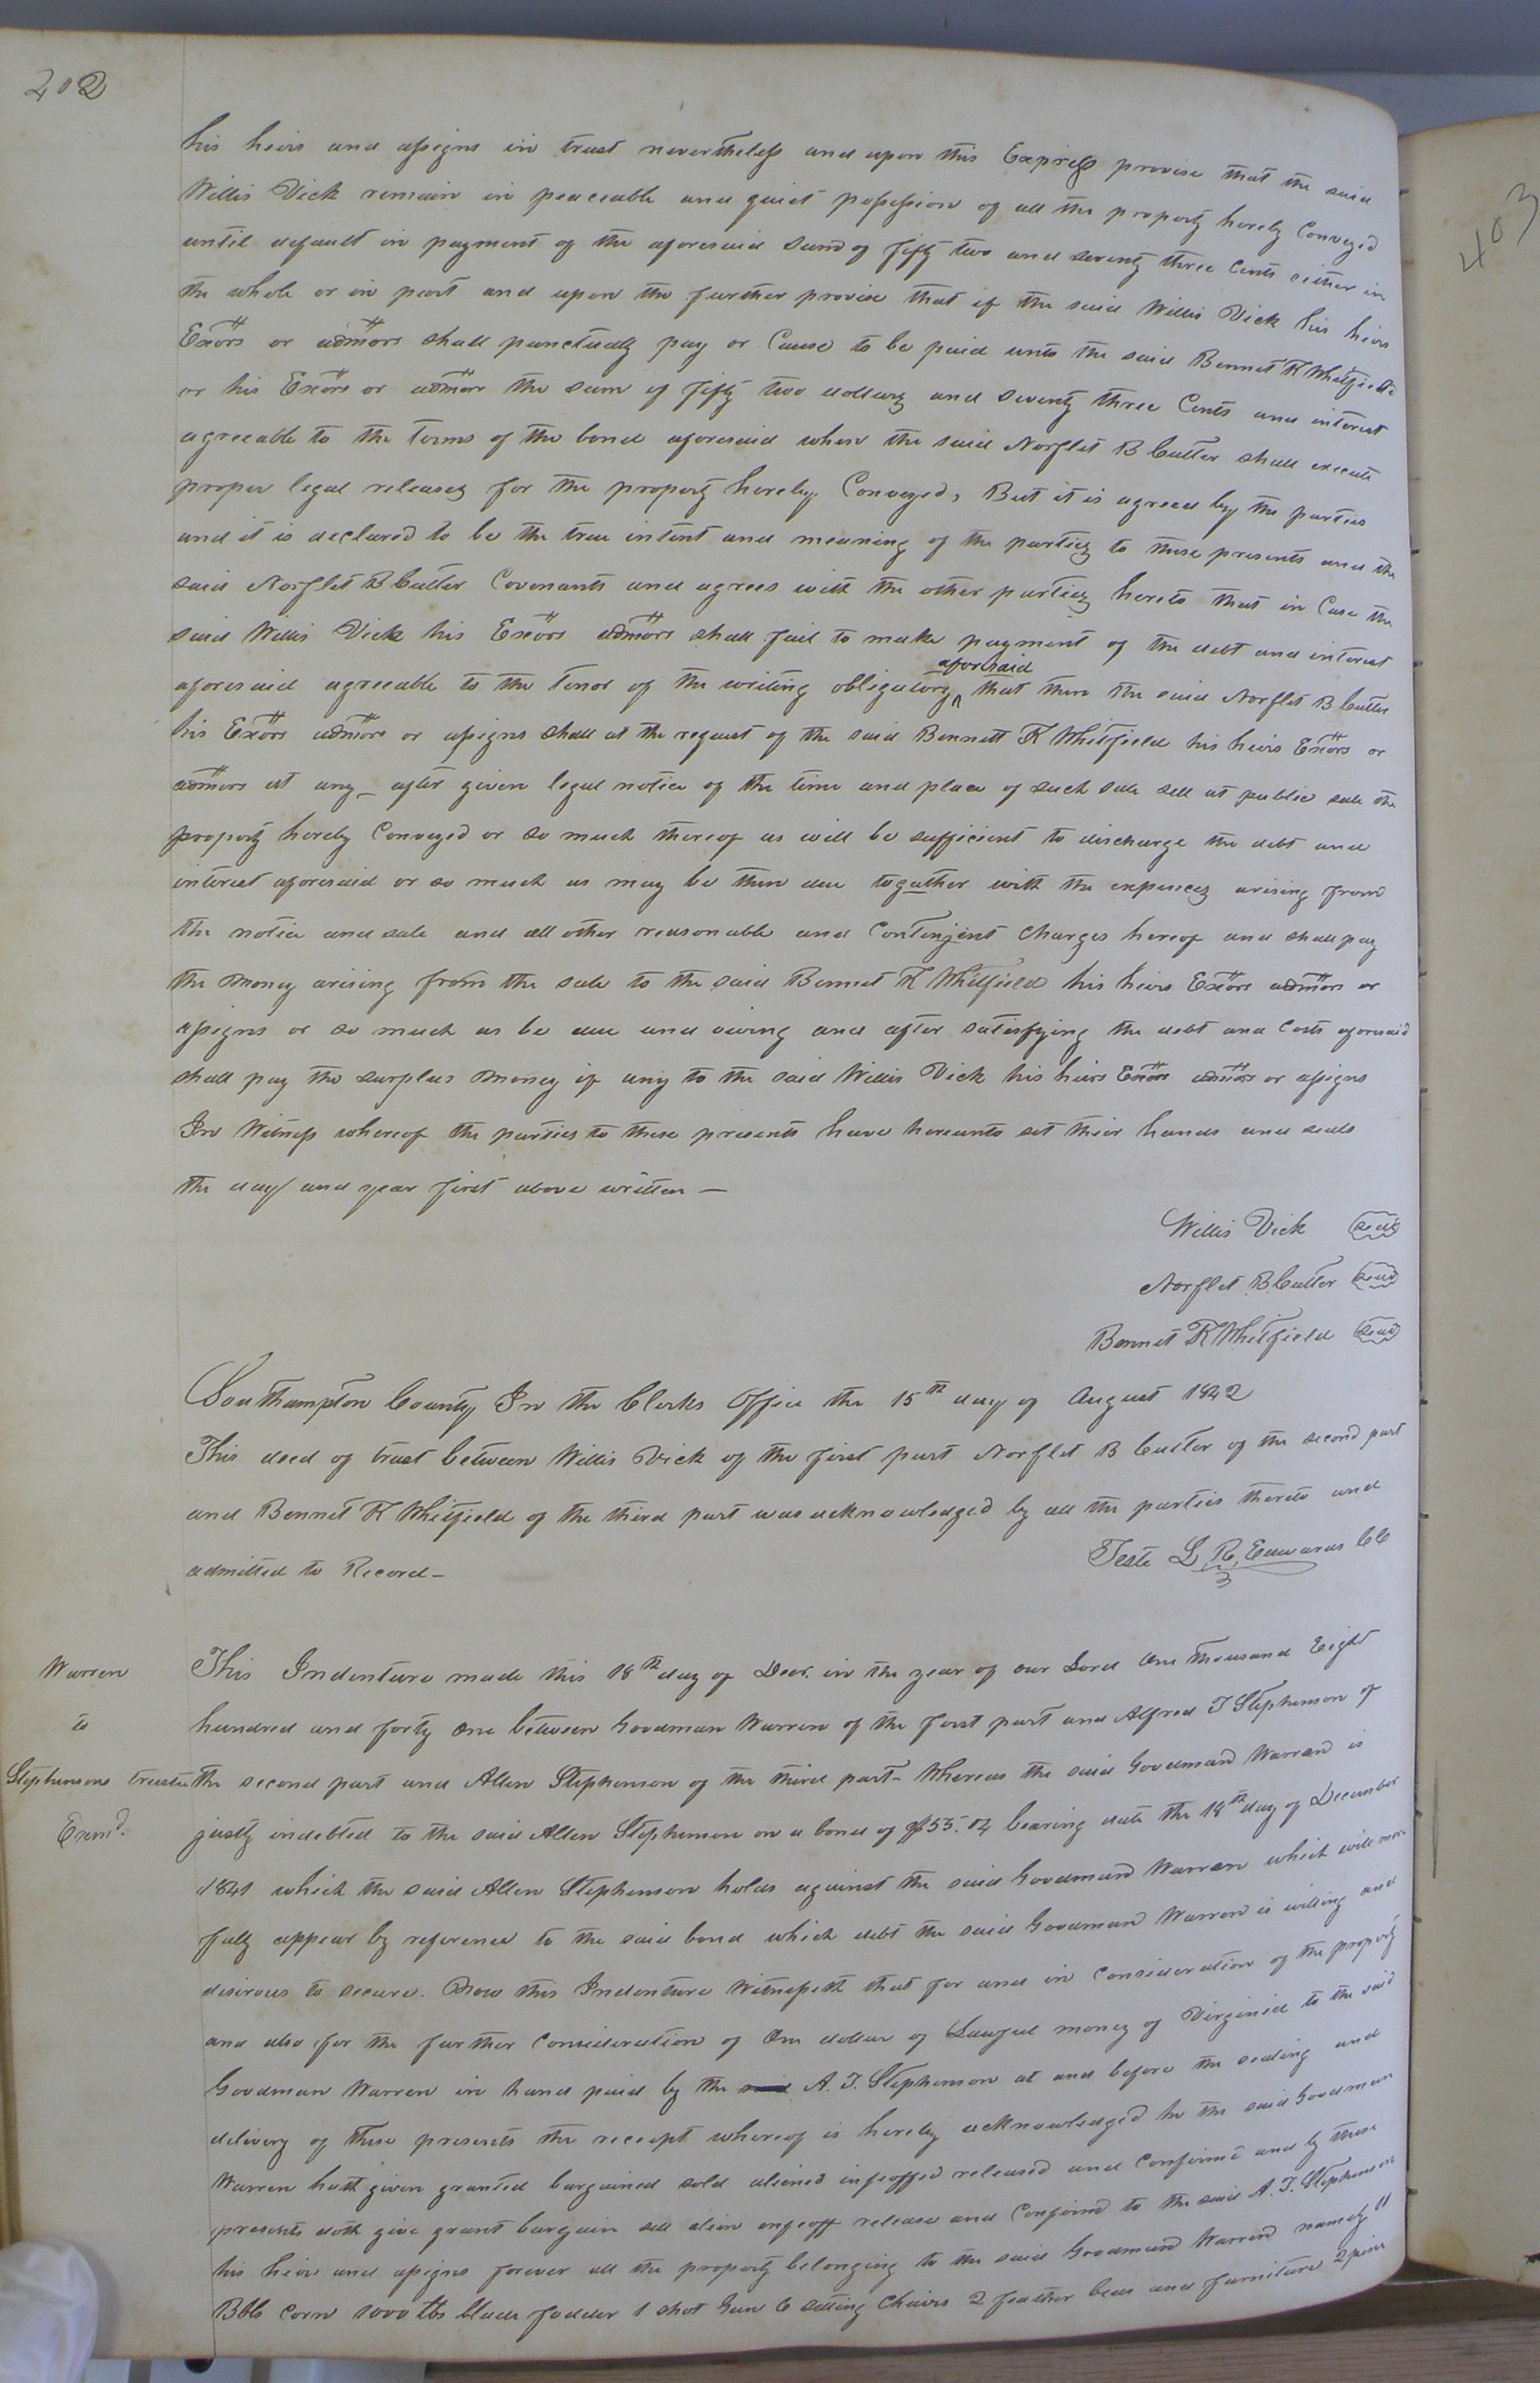 202
403
his heirs and assigns in trust nevertheless and upon this Express proviso that the said
Willis Vick remain in peaceable and quiet possession of all the property hereby Conveyed
until default in payment of the aforesaid sum of fifty two and seventy three Cents either in
the whole or in part and upon the further proviso that if the said Willis Vick his heirs
Exors or admors shall punctually pay or Cause to be paid unto the said Bennet K Whitfield
or his Exors or admors the sum of fifty two dollars and seventy three Cents and interest
agreeable to the terms of the bond aforesaid when the said Norflet B Cutler shall execute
proper legal releases for the property hereby Conveyed, But it is agreed by the parties
and it is declared to be the true intent and meaning of the parties to these presents and the
said Norflet B Cutler Covenants and agrees with the other parties hereto that in Case the
said Willis Vick his Exors admors shall fail to make payment of the debt and interest
aforesaid agreeable to the tenor of the writing obligatory aforesaid that then the said Norflet B Cutler
his Exors admors or assigns shall at the request of the said Bennett K Whitfield his heirs Exors or
admors at any _ after given legal notice of the time and place of such sale sell at public sale the
property hereby Conveyed or so much thereof as will be sufficient to discharge the debt and
interest aforesaid or so much as may be then due togather with the expences arising from
the notice and sale and all other reasonable and Continjent Charges hereof and shall pay
the money arising from the sale to the said Bennet K Whitfield his heirs Exors admors or
assigns or so much as be due and owing and after satisfying the debt and Costs aforesaid
shall pay the surplus money if any to the said Willis Vick his heirs Exors admors or assigns
In Witness whereof the parties to these presents have hereunto set their hands and seals
the day and year first above written —
Willis Vick seal
Norflet B Cutler seal
Bennet K Whitfield seal
Southampton County In the Clerks Office the 15th day of August 1842
This deed of trust between Willis Vick of the first part Norflet B Cutler of the second part
and Bennet K Whitfield of the third part was acknowledged by all the parties thereto and
admitted to Record -
Teste L. R. Edwards CC
Warren
to
Stephensons trustee
Exemd.
This Indenture made this 18th day of Decr. in the year of our Lord One thousand Eight
hundred and forty One between Goodman Warren of the first part and Alfred J Stephenson of
the second part and Allen Stephenson of the third part - Whereas the said Goodman Warren is
justly indebted to the said Allen Stephenson on a bond of $55.04 bearing date the 18th day of December
1841 which the said Allen Stephenson holds against the said Goodman Warren which will more
fully appear by reference to the said bond which debt the said Goodman Warren is willing and
desirous to secure. Now this Indenture Witnesseth that for and in Consideration of the property
and also for the further Consideration of One dollar of Lawful money of Virginia to the said
Goodman Warren in hand paid by the said A. J. Stephenson at and before the sealing and
delivery of these presents the receipt whereof is hereby acknowledged he the said Goodman
Warren hath given granted bargained sold aliened infeoffed released and Confirmd and by these
presents doth give grant bargain sell alien enfeoff release and Confirm to the said A. J. Stephenson
his heirs and assigns forever all the property belonging to the said Goodman Warren namely 11
Bbls corn 1000 lbs blade fodder 1 shot Gun 6 setting Chairs 2 feather beds and furniture 2 pine